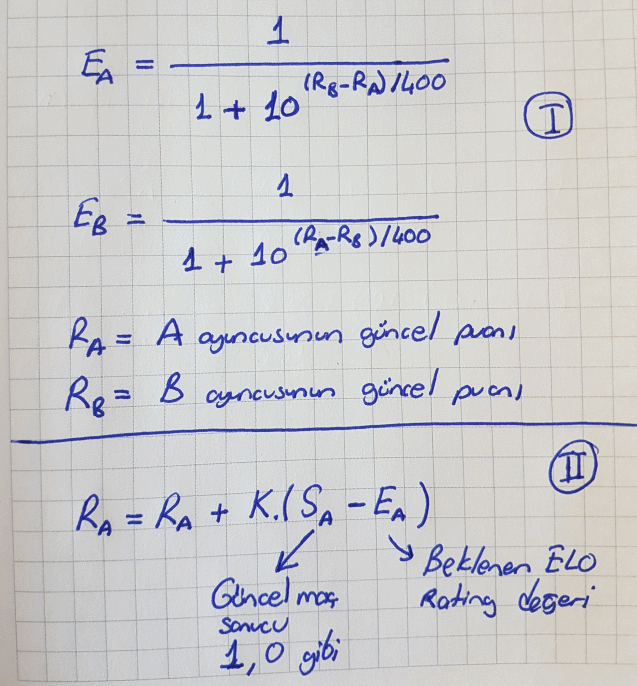 E_A = 1 / (1 + 10^((R_B-R_A)/400))
I
E_B = 1 / (1 + 10^((R_A-R_B)/400))
R_A = A oyuncusunun güncel puanı
R_B = B oyuncusunun güncel puanı
II
R_A = R_A + K.(S_A - E_A)
Güncel maç
sonucu
1, 0 gibi
Beklenen ELO
Rating değeri